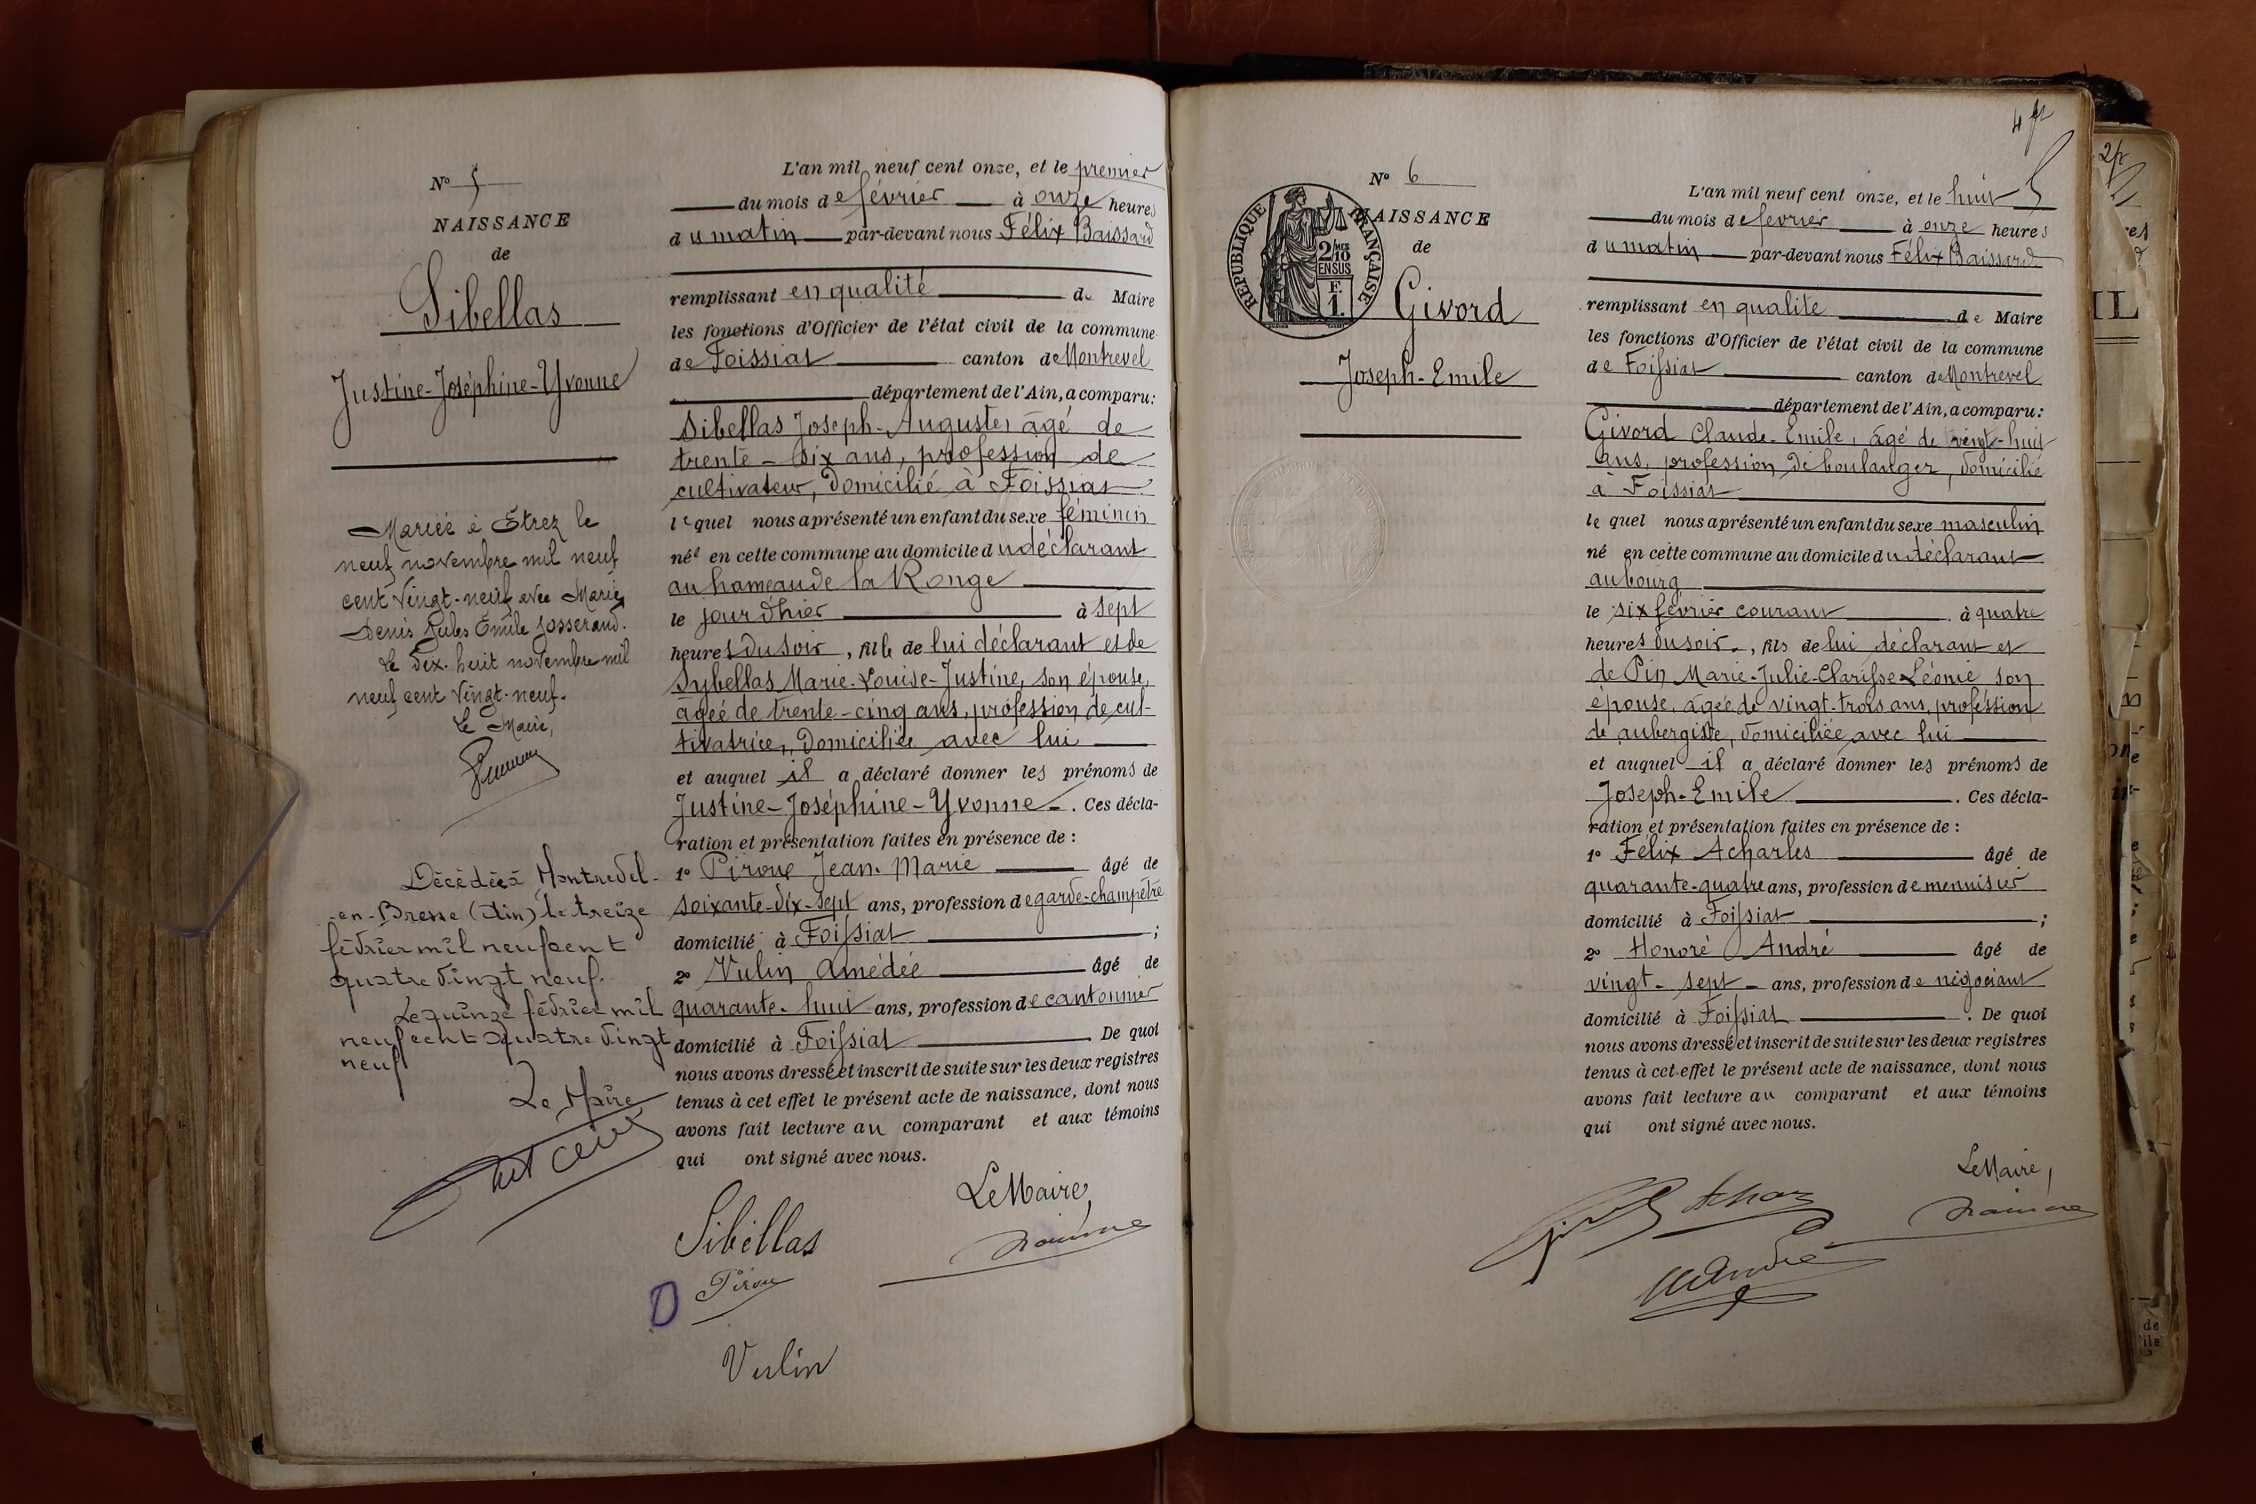 N° 5
NAISSANCE
de
Sibellas
Justine-Joséphine-Yvonne
Mariée à Etrez le
neuf novembre mil neuf
cent vingt-neuf avec Marie
Denis Jules Emile Josserand.
Le dix-huit novembre mil
neuf cent vingt-neuf.
Le Maire,
Décédée à Montrevel-
-en-Bresse (Ain) le treize
février mil neuf cent
quatre vingt neuf.
Le quinze février mil
neuf cent quatre vingt
neuf
Le Maire
L'an mil neuf cent onze, et le premier
du mois de février à onze heures
du matin par-devant nous Félix Baissard
remplissant en qualité de Maire
les fonctions d'Officier de l'état civil de la commune
de Foissiat canton de Montrevel
département de l'Ain, a comparu:
Sibellas Joseph-Auguste, âgé de
trente-six ans, profession de
cultivateur, domicilié à Foissiat
lequel nous a présenté un enfant du sexe féminin
née en cette commune au domicile du déclarant
au hameau de la Ronge
le jour d'hier à sept
heures du soir, fille de lui déclarant et de
Sybellas Marie-Louise-Justine, son épouse,
âgée de trente-cinq ans, profession de cul-
tivatrice, domiciliée avec lui
et auquel il a déclaré donner les prénoms de
Justine-Joséphine-Yvonne. Ces décla-
ration et présentation faites en présence de :
1° Piroux Jean-Marie âgé de
soixante-dix-sept ans, profession de garde-champêtre
domicilié à Foissiat ;
2° Vulin Amédée âgé de
quarante-huit ans, profession de cantonnier
domicilié à Foissiat. De quoi
nous avons dressé et inscrit de suite sur les deux registres
tenus à cet effet le présent acte de naissance, dont nous
avons fait lecture au comparant et aux témoins
qui ont signé avec nous.
Le Maire,
Sibellas
Pirou
Vulin
N° 6
NAISSANCE
de
REPUBLIQUE FRANÇAISE
2/10 MES
EN SUS
F.
1.
Givord
Joseph-Emile
L'an mil neuf cent onze, et le huit
du mois de février à onze heures
du matin par-devant nous Félix Baissard
remplissant en qualité de Maire
les fonctions d'Officier de l'état civil de la commune
de Foissiat canton de Montrevel
département de l'Ain, a comparu:
Givord Claude-Emile, âgé de vingt-huit
ans, profession de boulanger, domicilié
à Foissiat
lequel nous a présenté un enfant du sexe masculin
né en cette commune au domicile du déclarant
au bourg
le six février courant à quatre
heures du soir, fils de lui déclarant et
de Pin Marie-Julie-Clarisse-Léonie son
épouse, âgée de vingt-trois ans, profession
de aubergiste, domiciliée avec lui
et auquel il a déclaré donner les prénoms de
Joseph-Emile. Ces décla-
ration et présentation faites en présence de :
1° Félix Acharles âgé de
quarante-quatre ans, profession de menuisier
domicilié à Foissiat ;
2° Honoré André âgé de
vingt-sept ans, profession de négociant
domicilié à Foissiat. De quoi
nous avons dressé et inscrit de suite sur les deux registres
tenus à cet effet le présent acte de naissance, dont nous
avons fait lecture au comparant et aux témoins
qui ont signé avec nous.
Le Maire,